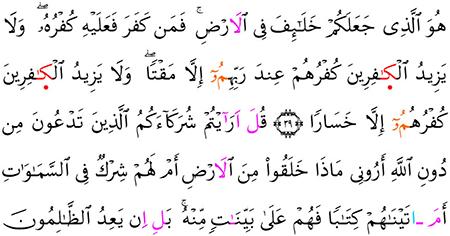 هُوَ ٱلَّذِى جَعَلَكُمْ خَلَـٰٓئِفَ فِى ٱلَارْضِ ۚ فَمَن كَفَرَ فَعَلَيْهِ كُفْرُهُۥ ۖ وَلَا
يَزِيدُ ٱلْكَـٰفِرِينَ كُفْرُهُمْ عِندَ رَبِّهِمُۥٓ إِلَّا مَقْتًا ۖ وَلَا يَزِيدُ ٱلْكَـٰفِرِينَ
كُفْرُهُمُۥٓ إِلَّا خَسَارًا ﴿٣٩﴾ قُلَ اَرَآيْتُمْ شُرَكَآءَكُمُ ٱلَّذِينَ تَدْعُونَ مِن
دُونِ ٱللَّهِ أَرُونِى مَاذَا خَلَقُوا۟ مِنَ ٱلَارْضِ أَمْ لَهُمْ شِرْكٌ فِى ٱلسَّمَـٰوَٰتِ
أَمَ اتَيْنَـٰهُمْ كِتَـٰبًا فَهُمْ عَلَىٰ بَيِّنَـٰتٍ مِّنْهُ ۚ بَلِ اِن يَعِدُ ٱلظَّـٰلِمُونَ